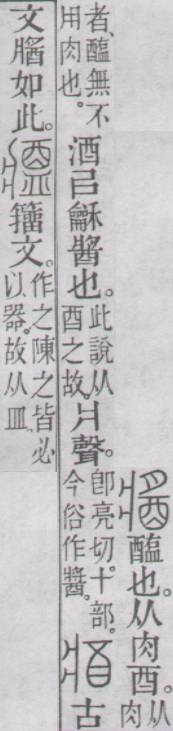 醢也。从肉酉。从肉
者、醢無不用肉也。酒㠯龢醬也。此說从酉之故。爿聲。卽亮切。十部。今俗作醬。古
文如此。籒文。作之陳之皆必以器。故从皿。